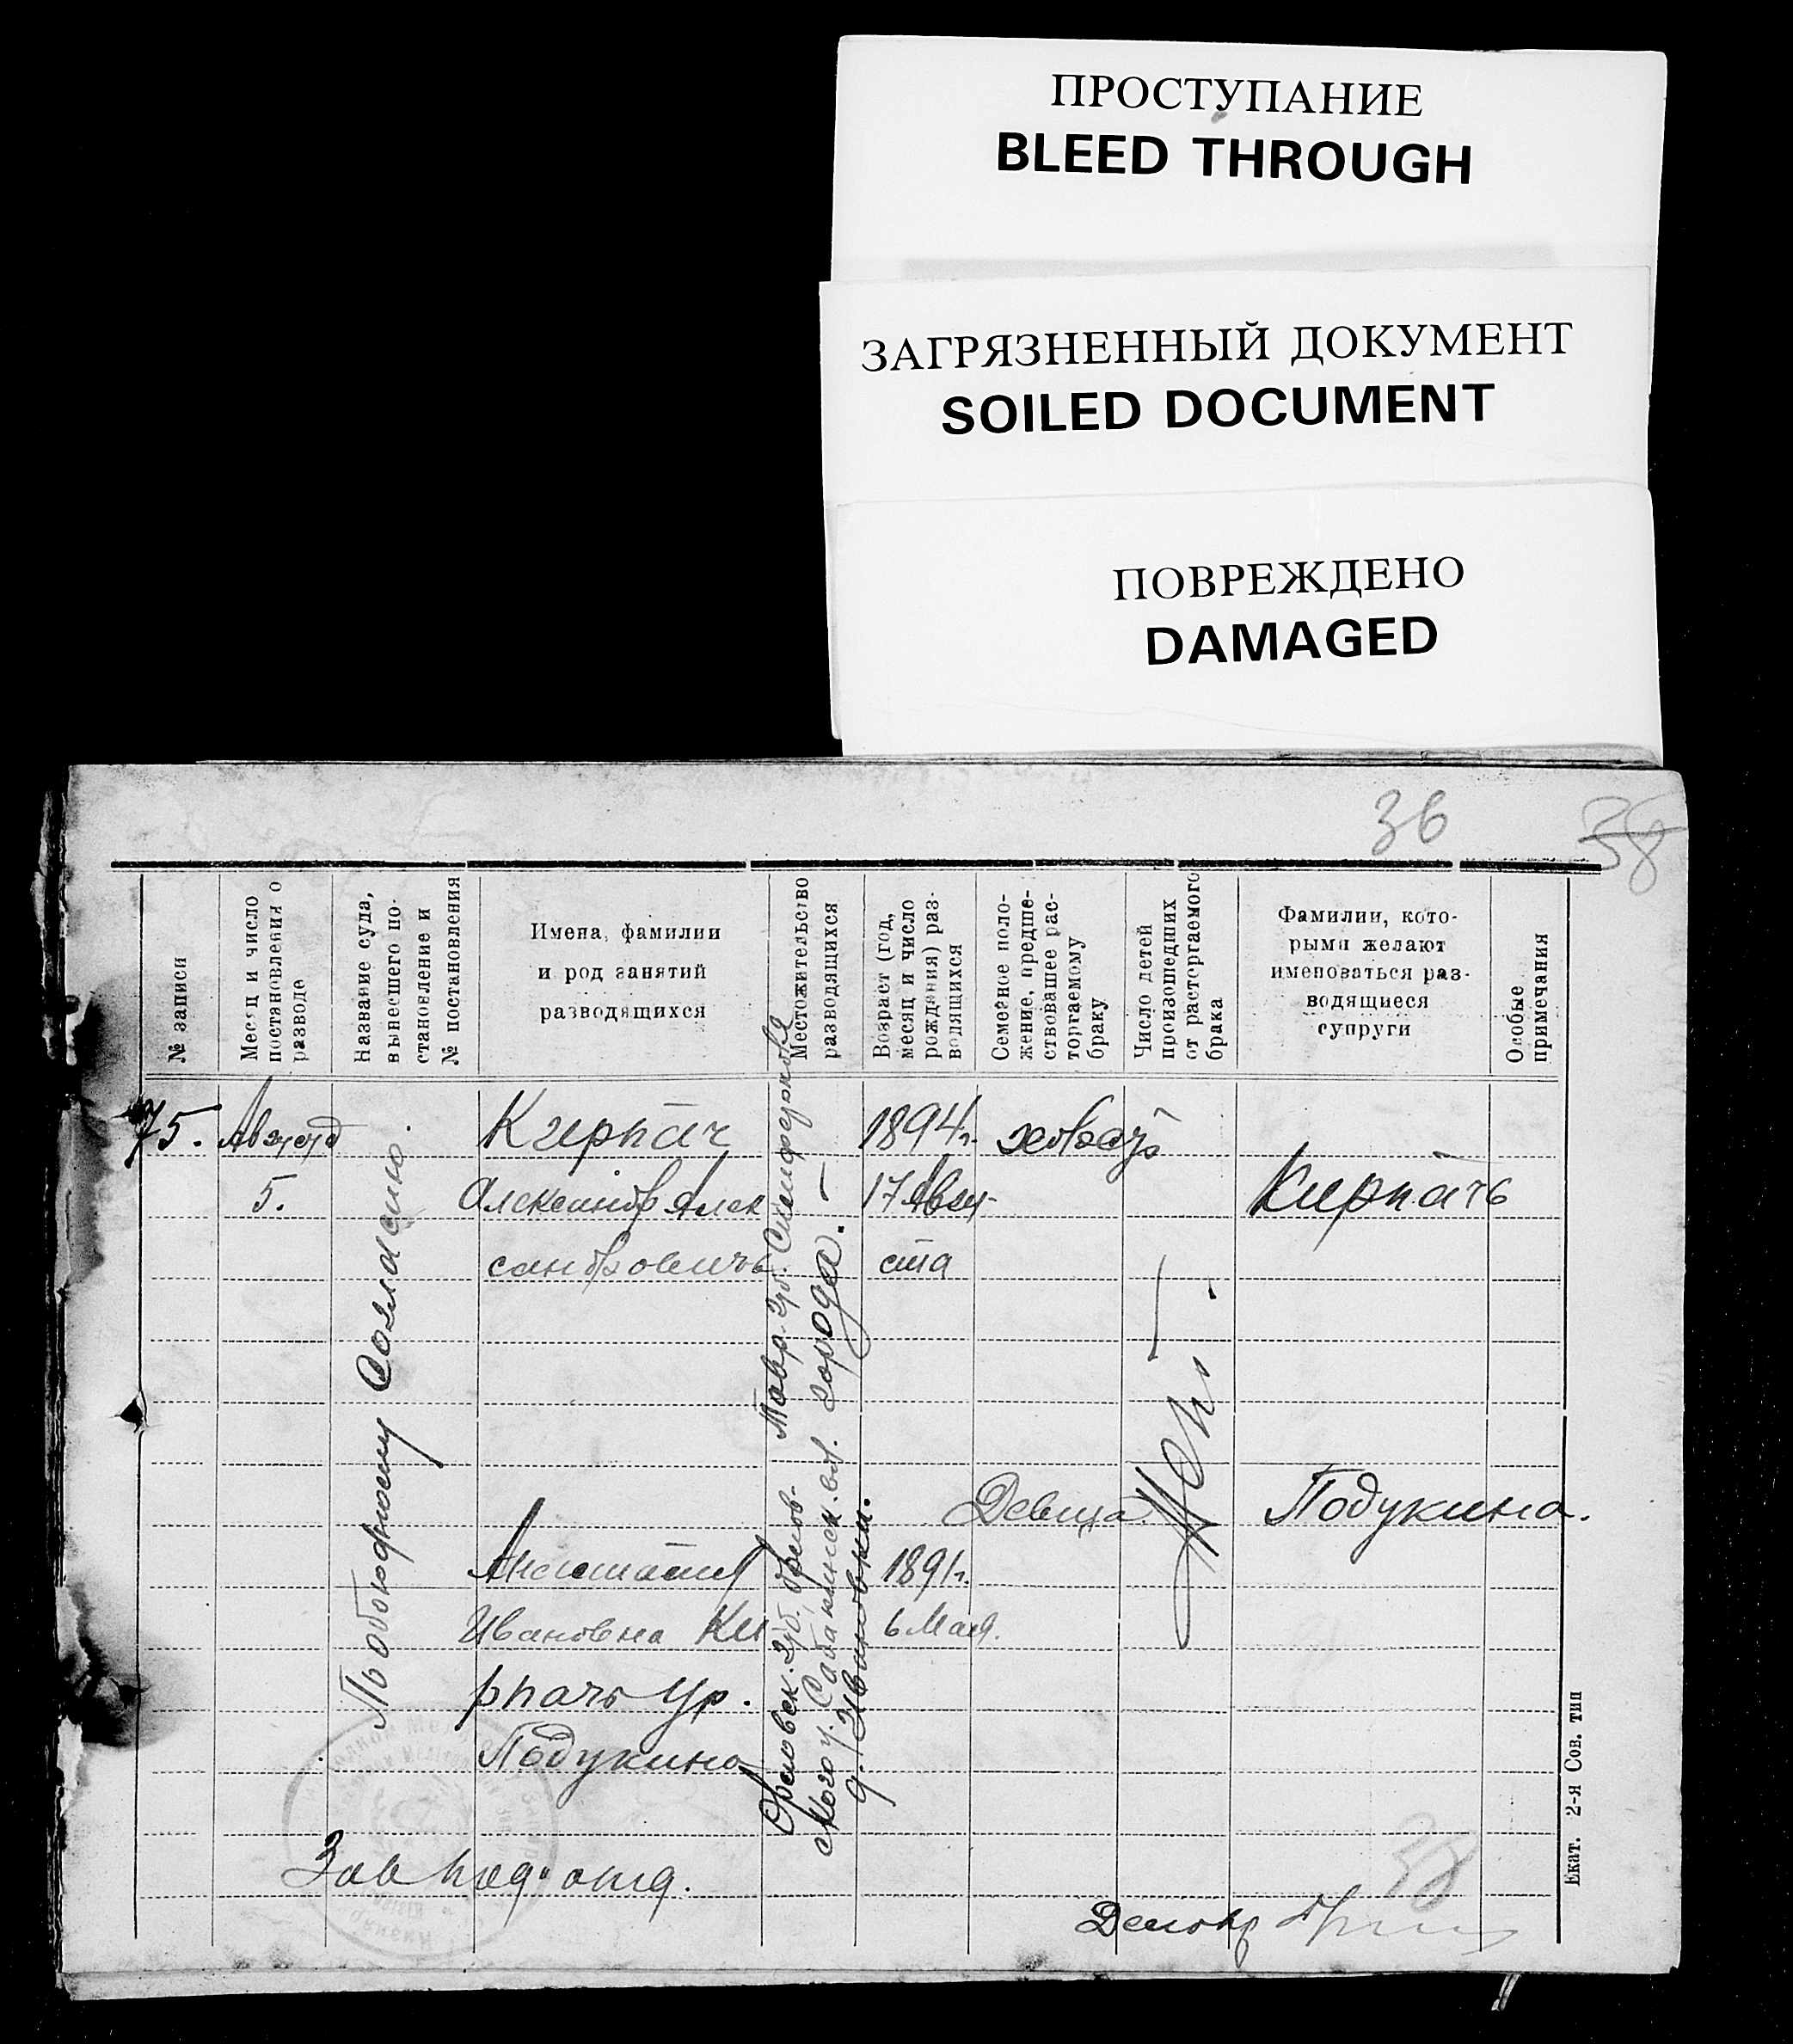 ПРОСТУПАНИЕ
BLEED THROUGH
ЗАГРЯЗНЕННЫЙ ДОКУМЕНТ
SOILED DOCUMENT
ПОВРЕЖДЕНО
DAMAGED
36
38
№ записи
Месяц и число
постановления о
разводе
Название суда,
вынесшего по-
становление и
№ постановления
Имена, фамилии
и род занятий
разводящихся
Местожительство
разводящихся
Возраст (год,
месяц и число
рождения) раз-
водящихся
Семейное поло-
жение, предше-
ствовавшее рас-
торгаемому
браку
Число детей
произошедших
от расторгаемого
брака
Фамилии, кото-
рыми желают
именоваться раз-
водящиеся
супруги
Особые
примечания
75.
Август
5.
По обоюдному Согласию.
Кирпач
Александр Алек
сандровичъ
Тавр. губ. Симферополя
города.
1894г.
17 Авгу-
ста
холост
Кирпачъ
Анастасия
Ивановна Ки
рпачъ ур.
Подукина
Орловск. губ.
Сабакинск. вол.
д. Ивановки.
1891г.
6 Мая.
Девица
Нет.
Подукина.
Зав под. отд.
38
Екат. 2-я Сов. тип